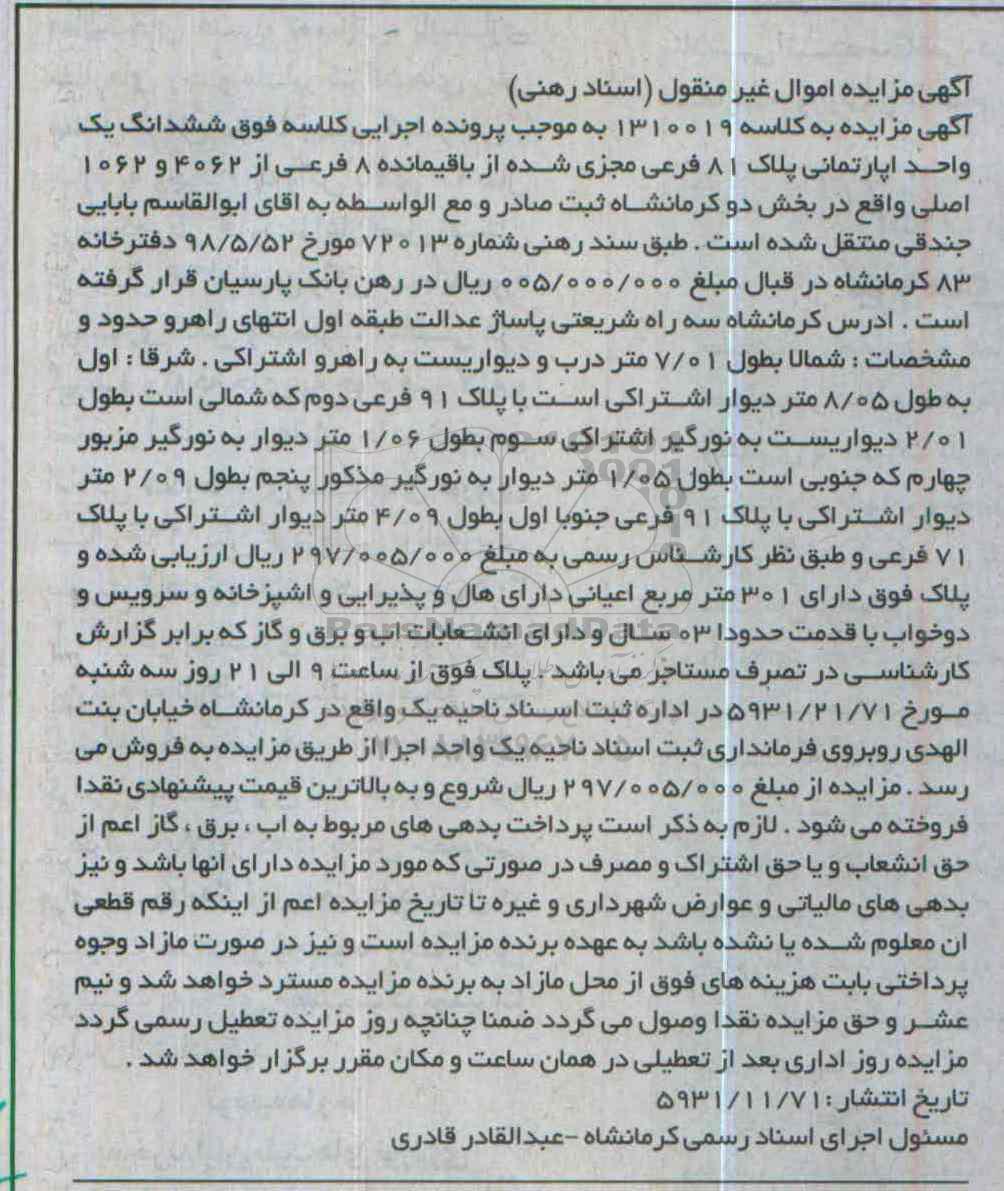 آگهی مزایده اموال غیر منقول (اسناد رهنی)
آگهی مزایده به کلاسه ۱۳۱۰۰۱۹ به موجب پرونده اجرایی کلاسه فوق ششدانگ یک
واحد اپارتمانی پلاک ۸۱ فرعی مجزی شده از باقیمانده ۸ فرعی از ۴۰۶۲ و ۱۰۶۲
اصلی واقع در بخش دو کرمانشاه ثبت صادر و مع الواسطه به اقای ابوالقاسم بابایی
جندقی منتقل شده است . طبق سند رهنی شماره ۷۲۰۱۳ مورخ ۹۸/۵/۵۲ دفترخانه
۸۳ کرمانشاه در قبال مبلغ ۰۰۵/۰۰۰/۰۰۰ ریال در رهن بانک پارسیان قرار گرفته
است . ادرس کرمانشاه سه راه شریعتی پاساژ عدالت طبقه اول انتهای راهرو حدود و
مشخصات : شمالا بطول ۷/۰۱ متر درب و دیواریست به راهرو اشتراکی . شرقا : اول
به طول ۸/۰۵ متر دیوار اشتراکی است با پلاک ۹۱ فرعی دوم که شمالی است بطول
۲/۰۱ دیواریست به نورگیر اشتراکی سوم بطول ۱/۰۶ متر دیوار به نورگیر مزبور
چهارم که جنوبی است بطول ۱/۰۵ متر دیوار به نورگیر مذکور پنجم بطول ۲/۰۹ متر
دیوار اشتراکی با پلاک ۹۱ فرعی جنوبا اول بطول ۴/۰۹ متر دیوار اشتراکی با پلاک
۷۱ فرعی و طبق نظر کارشناس رسمی به مبلغ ۲۹۷/۰۰۵/۰۰۰ ریال ارزیابی شده و
پلاک فوق دارای ۳۰۱ متر مربع اعیانی دارای هال و پذیرایی و اشپزخانه و سرویس و
دوخواب با قدمت حدودا ۰۳ سال و دارای انشعابات اب و برق و گاز که برابر گزارش
کارشناسی در تصرف مستاجر می باشد . پلاک فوق از ساعت ۹ الی ۲۱ روز سه شنبه
مورخ ۵۹۳۱/۲۱/۷۱ در اداره ثبت اسناد ناحیه یک واقع در کرمانشاه خیابان بنت
الهدی روبروی فرمانداری ثبت اسناد ناحیه یک واحد اجرا از طریق مزایده به فروش می
رسد . مزایده از مبلغ ۲۹۷/۰۰۵/۰۰۰ ریال شروع و به بالاترین قیمت پیشنهادی نقدا
فروخته می شود . لازم به ذکر است پرداخت بدهی های مربوط به اب ، برق ، گاز اعم از
حق انشعاب و یا حق اشتراک و مصرف در صورتی که مورد مزایده دارای انها باشد و نیز
بدهی های مالیاتی و عوارض شهرداری و غیره تا تاریخ مزایده اعم از اینکه رقم قطعی
ان معلوم شده یا نشده باشد به عهده برنده مزایده است و نیز در صورت مازاد وجوه
پرداختی بابت هزینه های فوق از محل مازاد به برنده مزایده مسترد خواهد شد و نیم
عشر و حق مزایده نقدا وصول می گردد ضمنا چنانچه روز مزایده تعطیل رسمی گردد
مزایده روز اداری بعد از تعطیلی در همان ساعت و مکان مقرر برگزار خواهد شد .
تاریخ انتشار : ۵۹۳۱/۱۱/۷۱
مسئول اجرای اسناد رسمی کرمانشاه -عبدالقادر قادری
ParsNamadData